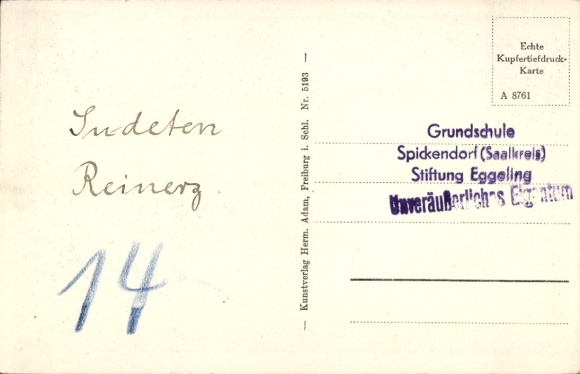 Sudeten
Reinerz
14
— Kunstverlag Herm. Adam, Freiburg i. Schl. Nr. 5193 —
Echte
Kupfertiefdruck-
Karte
A 8761
Grundschule
Spickendorf (Saalkreis)
Stiftung Eggeling
Unveräußerliches Eigentum